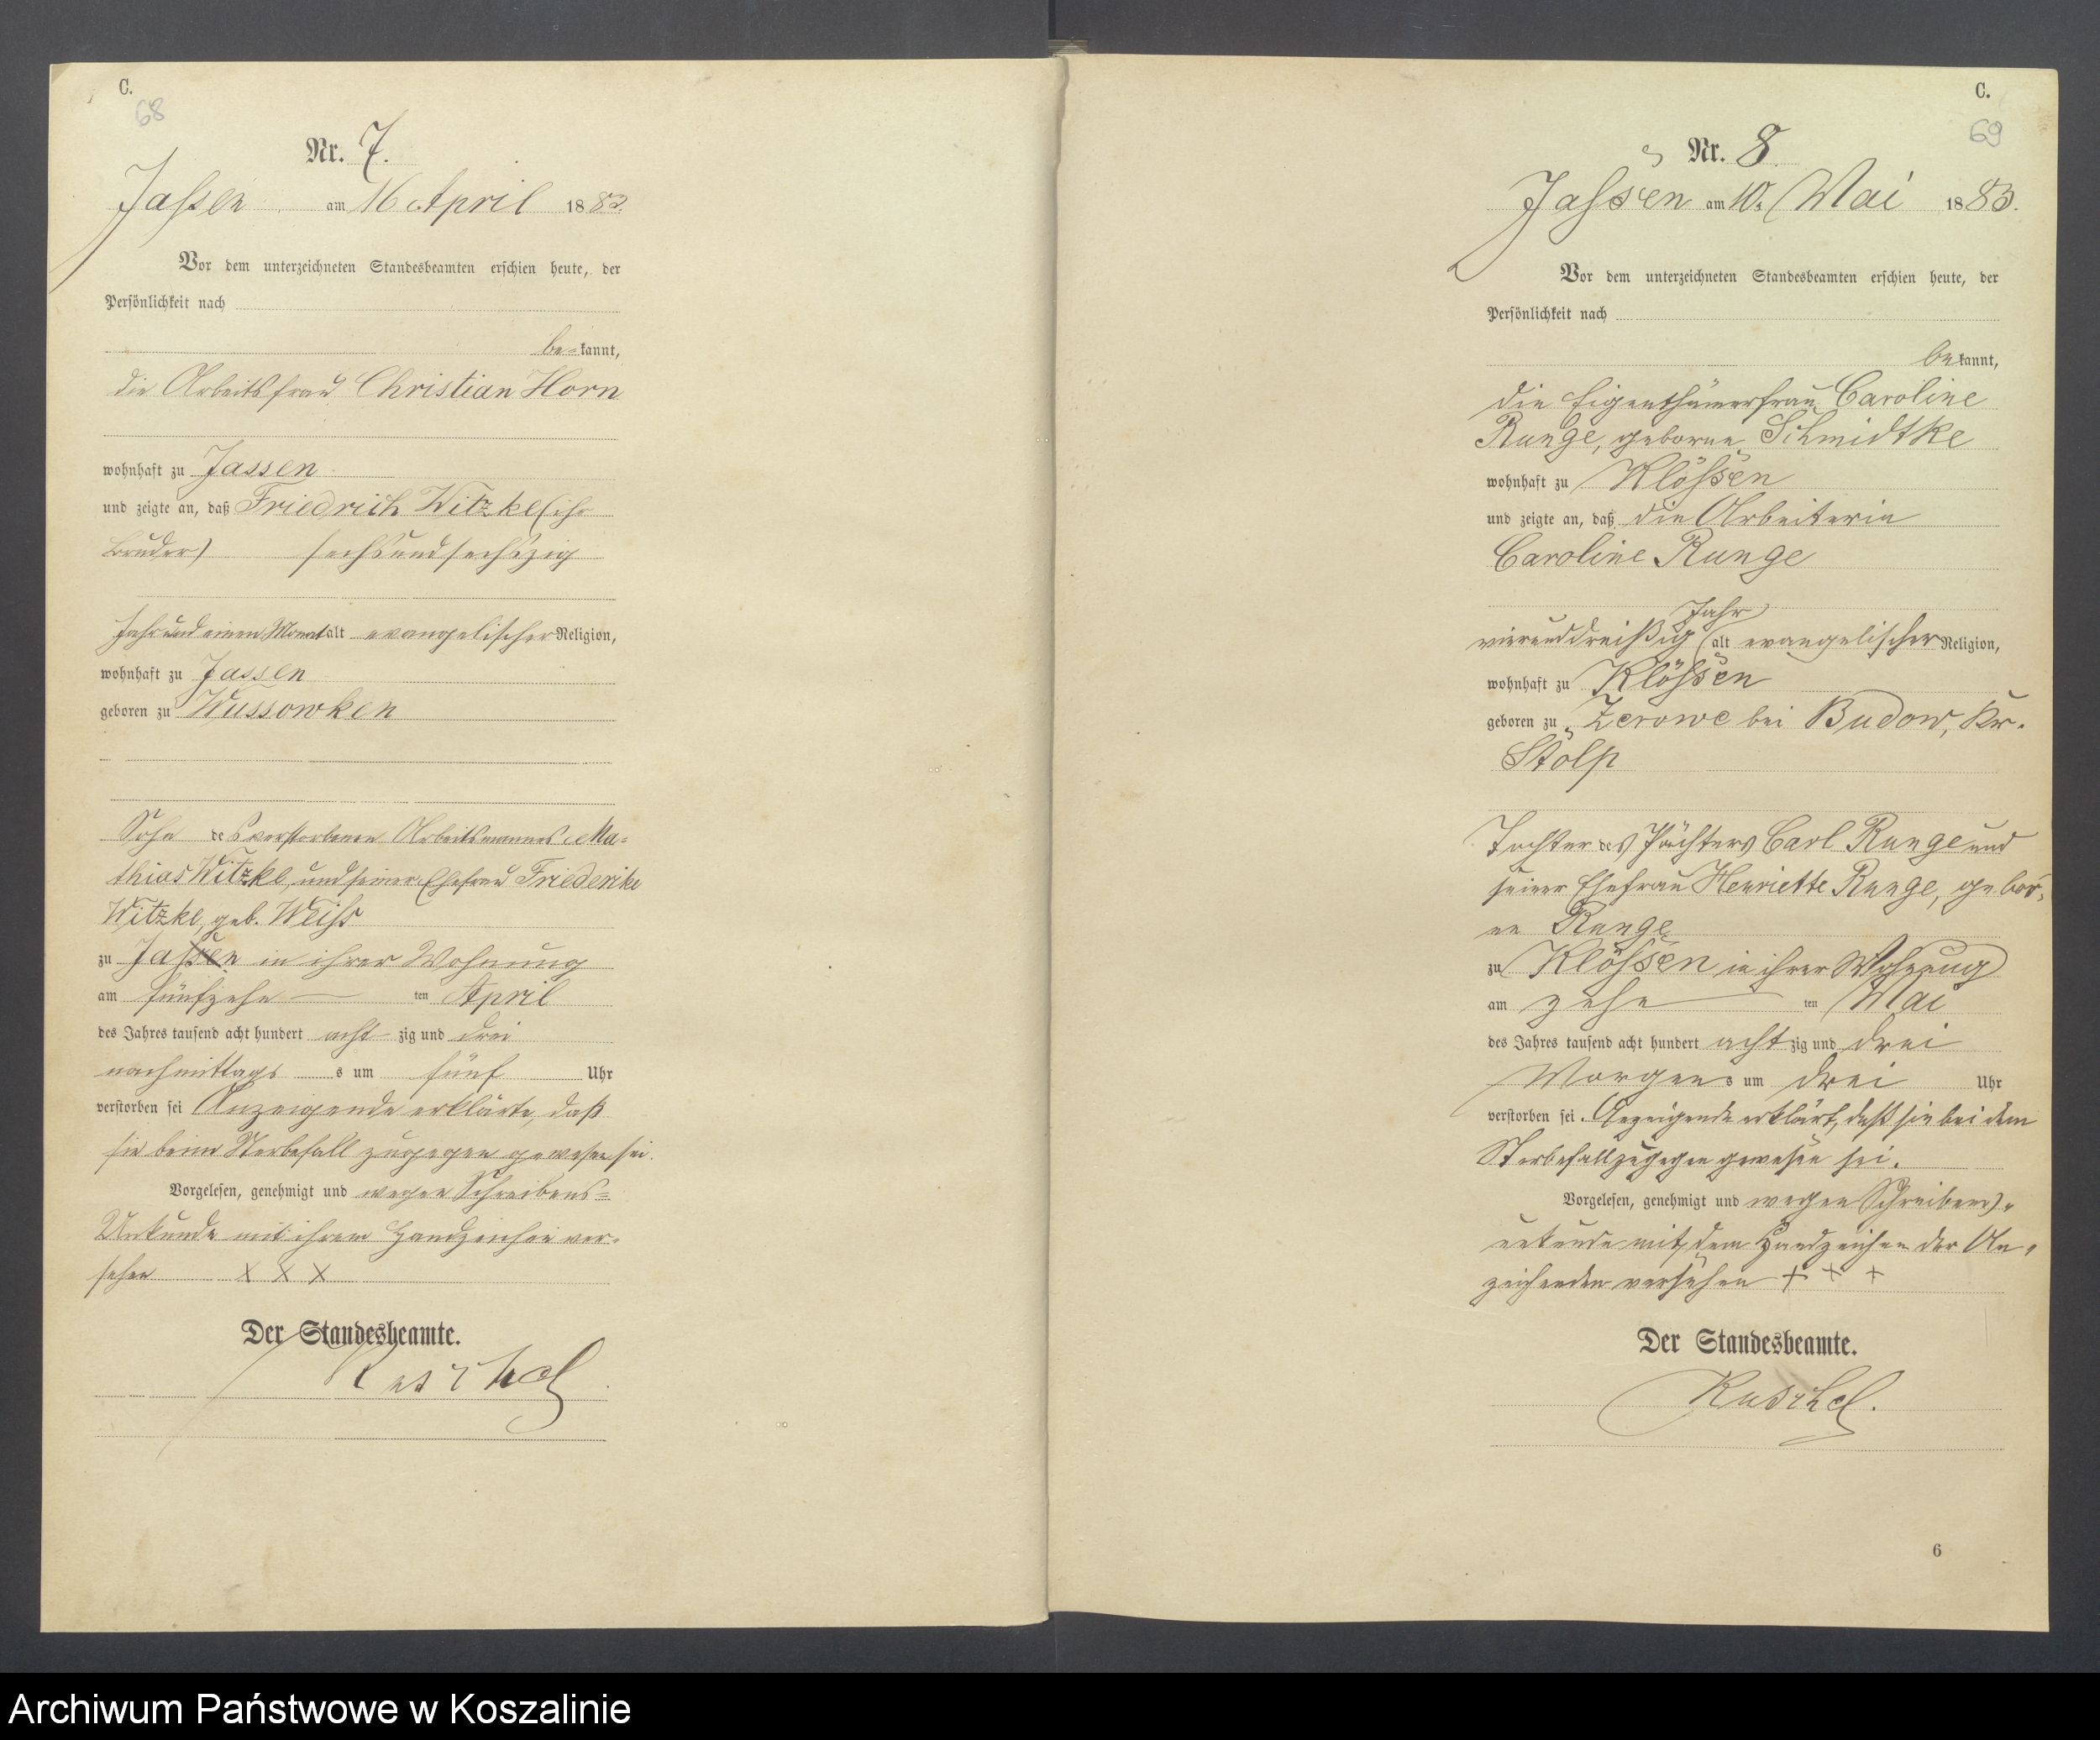 C.
68
Nr. 7.
Jassen am 16 April 1883
Vor dem unterzeichneten Standesbeamten erschien heute, der
Persönlichkeit nach
be-kannt,
die Arbeitsfrau Christian Horn
wohnhaft zu Jassen
und zeigte an, daß Friedrich Witzke (ihr
Bruder) sechsundsechszig
Jahr und einen Monat alt evangelischer Religion,
wohnhaft zu Jassen
geboren zu Wussowken
Sohn des verstorbenen Arbeitsmannes Ma-
thias Witzke, und seiner Ehefrau Friederike
Witzke, geb. Weiss
zu Jassen in ihrer Wohnung
am fünfzehn ten April
des Jahres tausend acht hundert acht zig und drei
nachmittags s um fünf Uhr
verstorben sei Anzeigende erklärte, daß
sie beim Sterbefall zugegen gewesen sei.
Vorgelesen, genehmigt und wegen Schreibens-
Unkunde mit ihrem Handzeichen ver-
sehen X X X
Der Standesbeamte.
Ruschel
C.
69
Nr. 8.
Jassen am 10. Mai 1883.
Vor dem unterzeichneten Standesbeamten erschien heute, der
Persönlichkeit nach
bekannt,
die Eigenthümerfrau Caroline
Runge, geborne Schmidtke
wohnhaft zu Klössen
und zeigte an, daß die Arbeiterin
Caroline Runge
Jahr
vierunddreißig alt evangelischer Religion,
wohnhaft zu Klössen
geboren zu Zerowe bei Budow, Kr.
Stolp
Tochter des Pächters Carl Runge und
seiner Ehefrau Henriette Runge, gebor-
ne Runge
zu Klössen in ihrer Wohnung
am zehn ten Mai
des Jahres tausend acht hundert acht zig und drei
Morgens um drei Uhr
verstorben sei. Anzeigende erklärt, daß sie bei dem
Sterbefall zugegen gewesen sei.
Vorgelesen, genehmigt und wegen Schreibens-
unkunde mit dem Handzeichen der An-
zeigenden versehen + + +
Der Standesbeamte.
Ruschel.
6
Archiwum Państwowe w Koszalinie